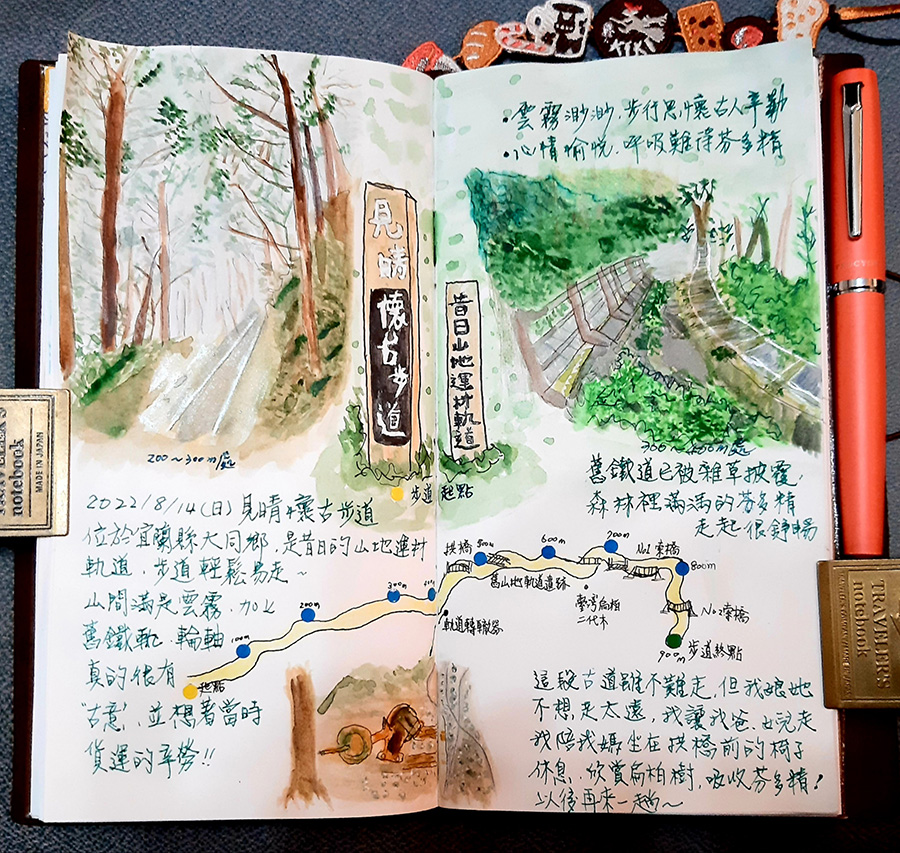 KIKI
•雲霧渺渺,步行思懷古人辛勤
•心情愉悅,呼吸難得芬多精
見晴
懷古步道
昔日山地運材軌道
200~300m處
300~400m處
舊鐵道已被雜草披覆,
森林裡滿滿的芬多精
走起很舒暢
步道起點
2022/8/14(日)見晴懷古步道
位於宜蘭縣大同鄉,是昔日的山地運材
軌道,步道輕鬆易走~
山間滿是雲霧,加上
舊鐵軌、輪軸
真的很有
"古意",並想著當時
貨運的辛勞!!
起點
100m
200m
300m
軌道轉轍器
拱橋
500m
舊山地軌道遺跡
600m
臺灣扁柏
二代木
700m
No1索橋
800m
No2索橋
900m
步道終點
這段古道雖不難走,但我媽她
不想走太遠,我讓我爸、女兒走
我陪我媽坐在拱橋前的椅子
休息,欣賞扁柏樹,吸收芬多精!
以後再來一趟~
TRAVELER'S
notebook
MADE IN JAPAN
TRAVELER'S
notebook